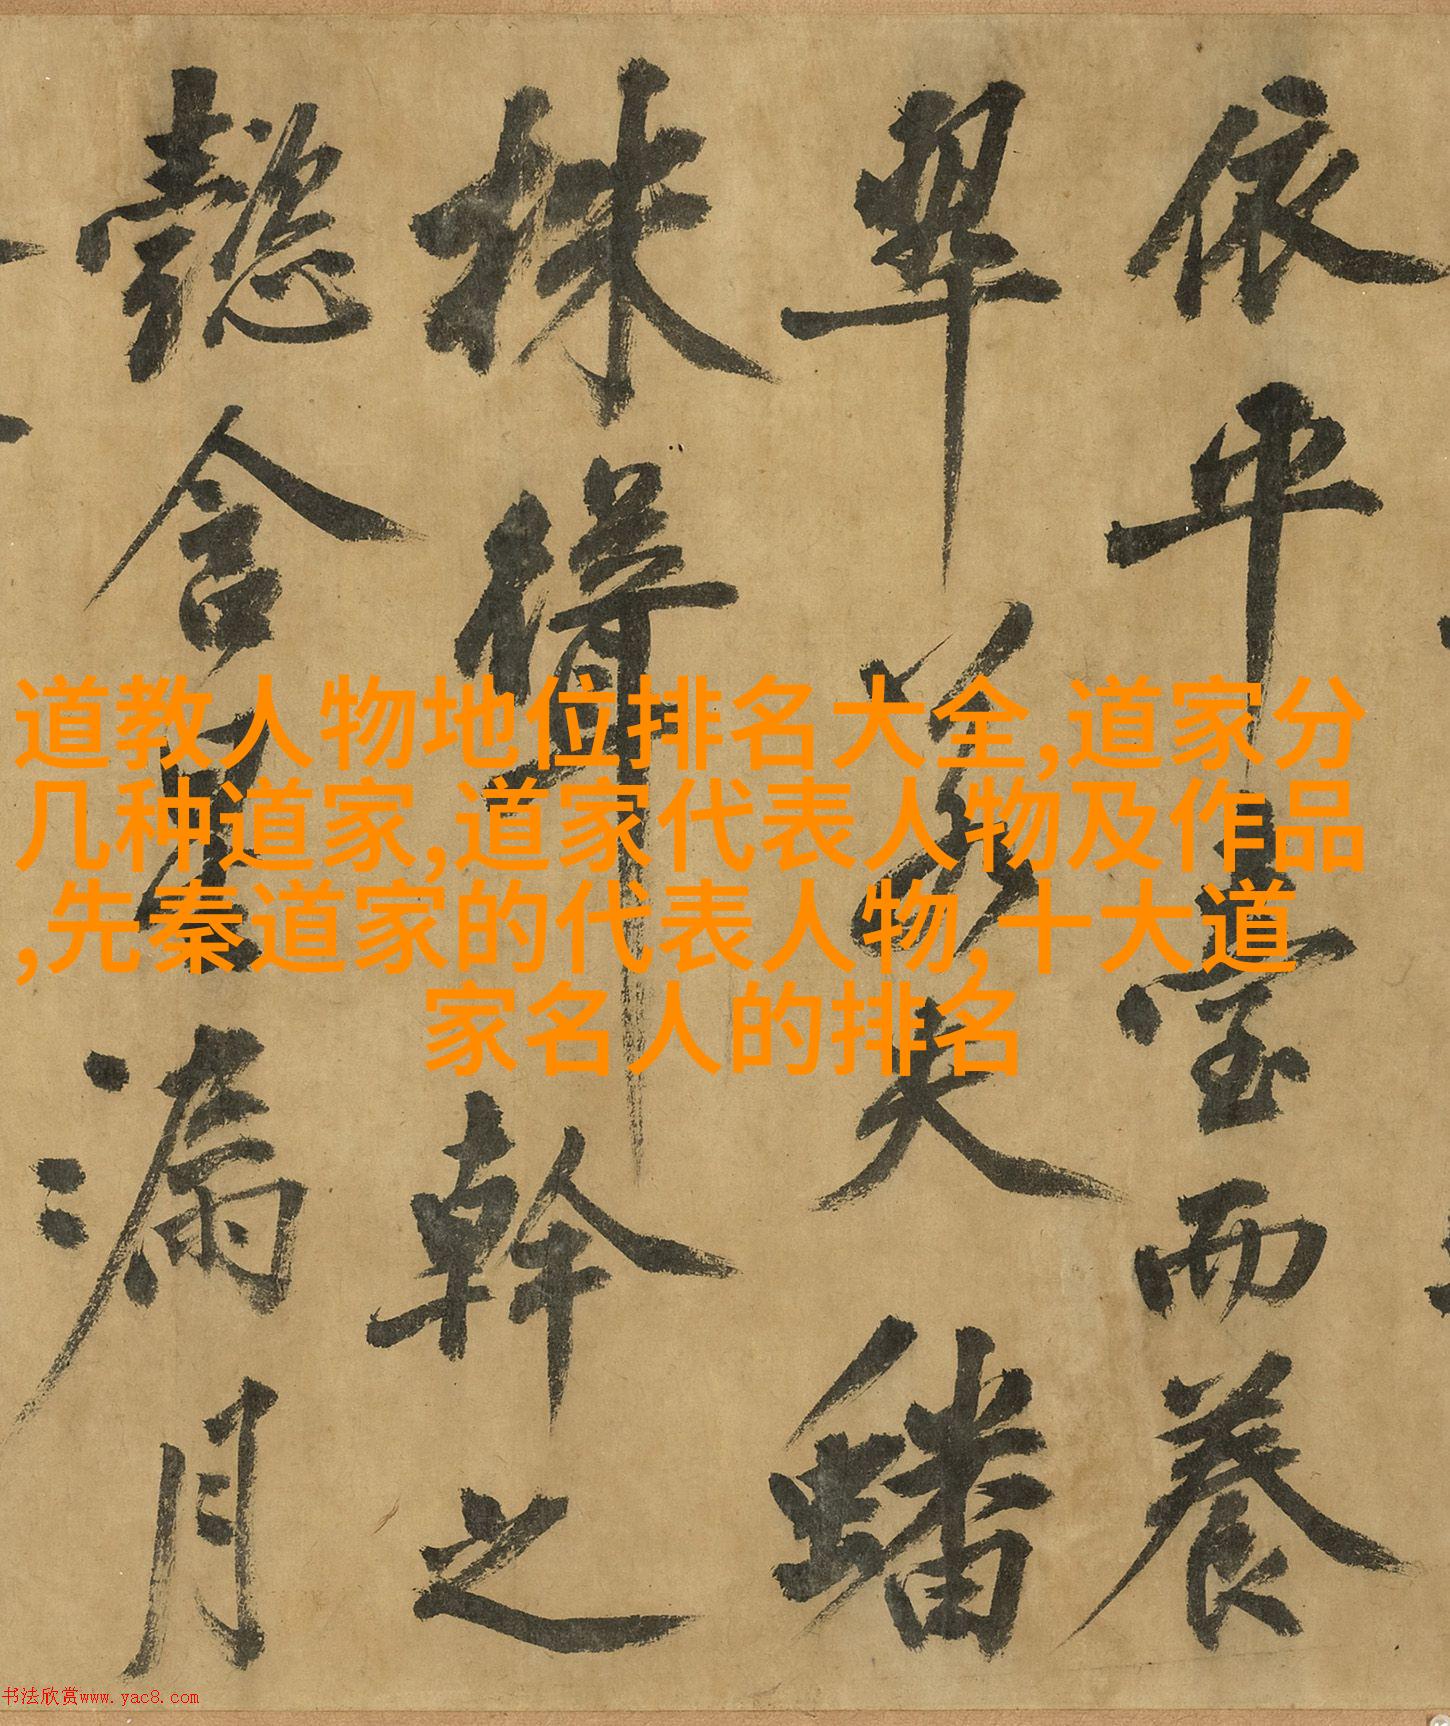 道教人物地位排名大全,道家分
几种道家,道家代表人物及作品
,先秦道家的代表人物,十大道
家名人的排名
依平臺而養
翠若夫蟠
林幹之
懿含星漏月
书法欣赏www.yac8.com